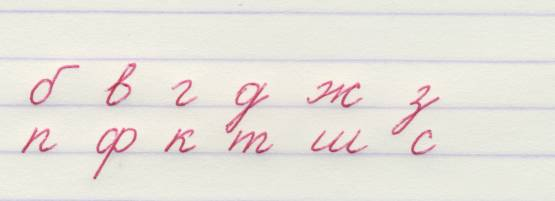 б в г д ж з
п ф к т ш с